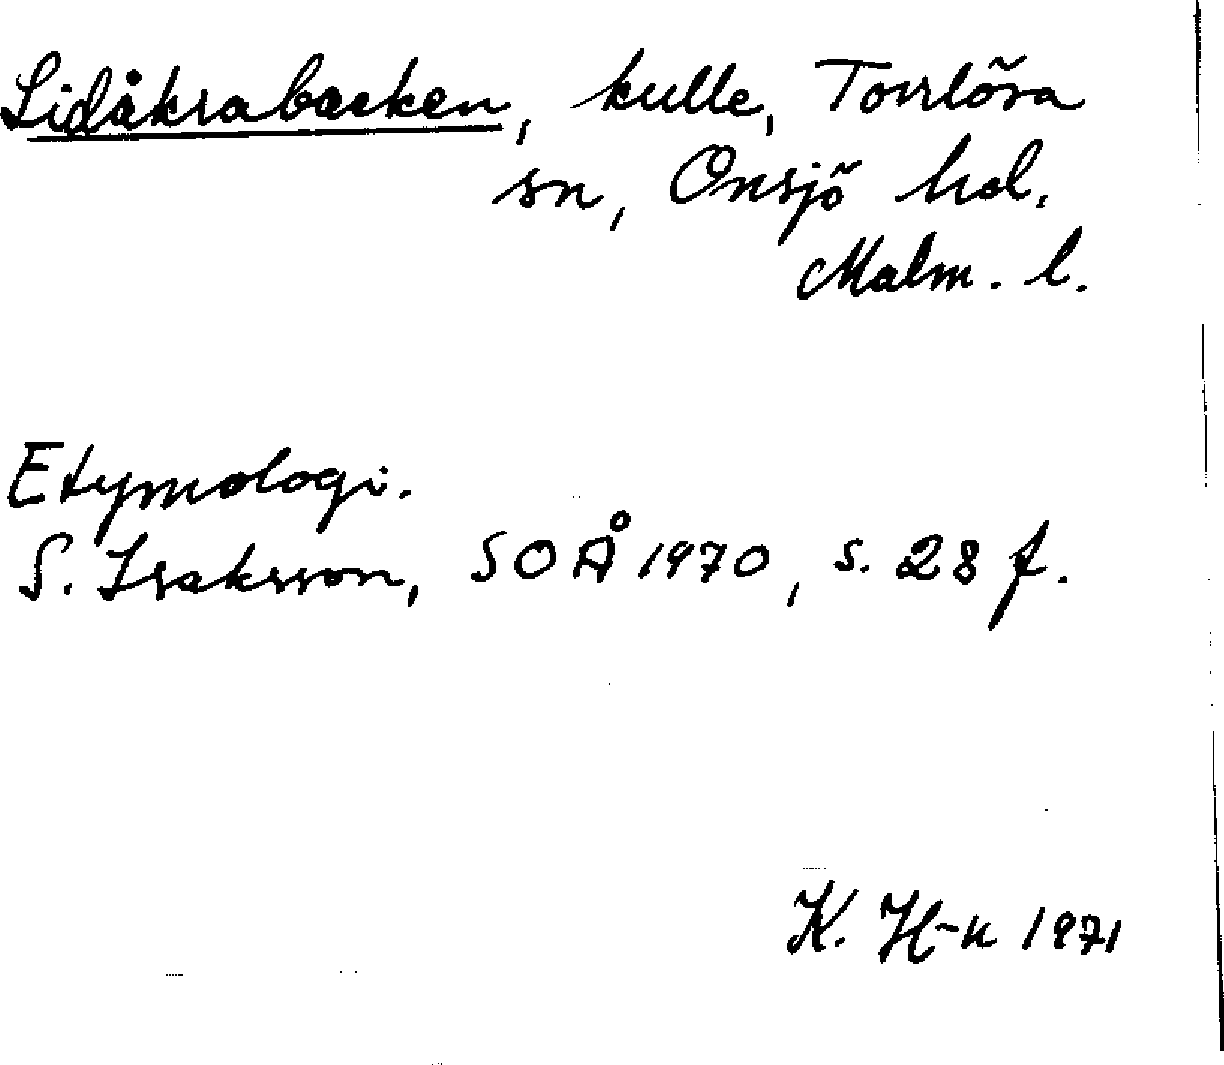 Lidåkrabacken, kulle, Torrlösa
sn, Onsjö hd.
Malm. l.
Etymologi.
S. Isaksson, SOÅ 1970, s. 28 f.
K. H-n 1971